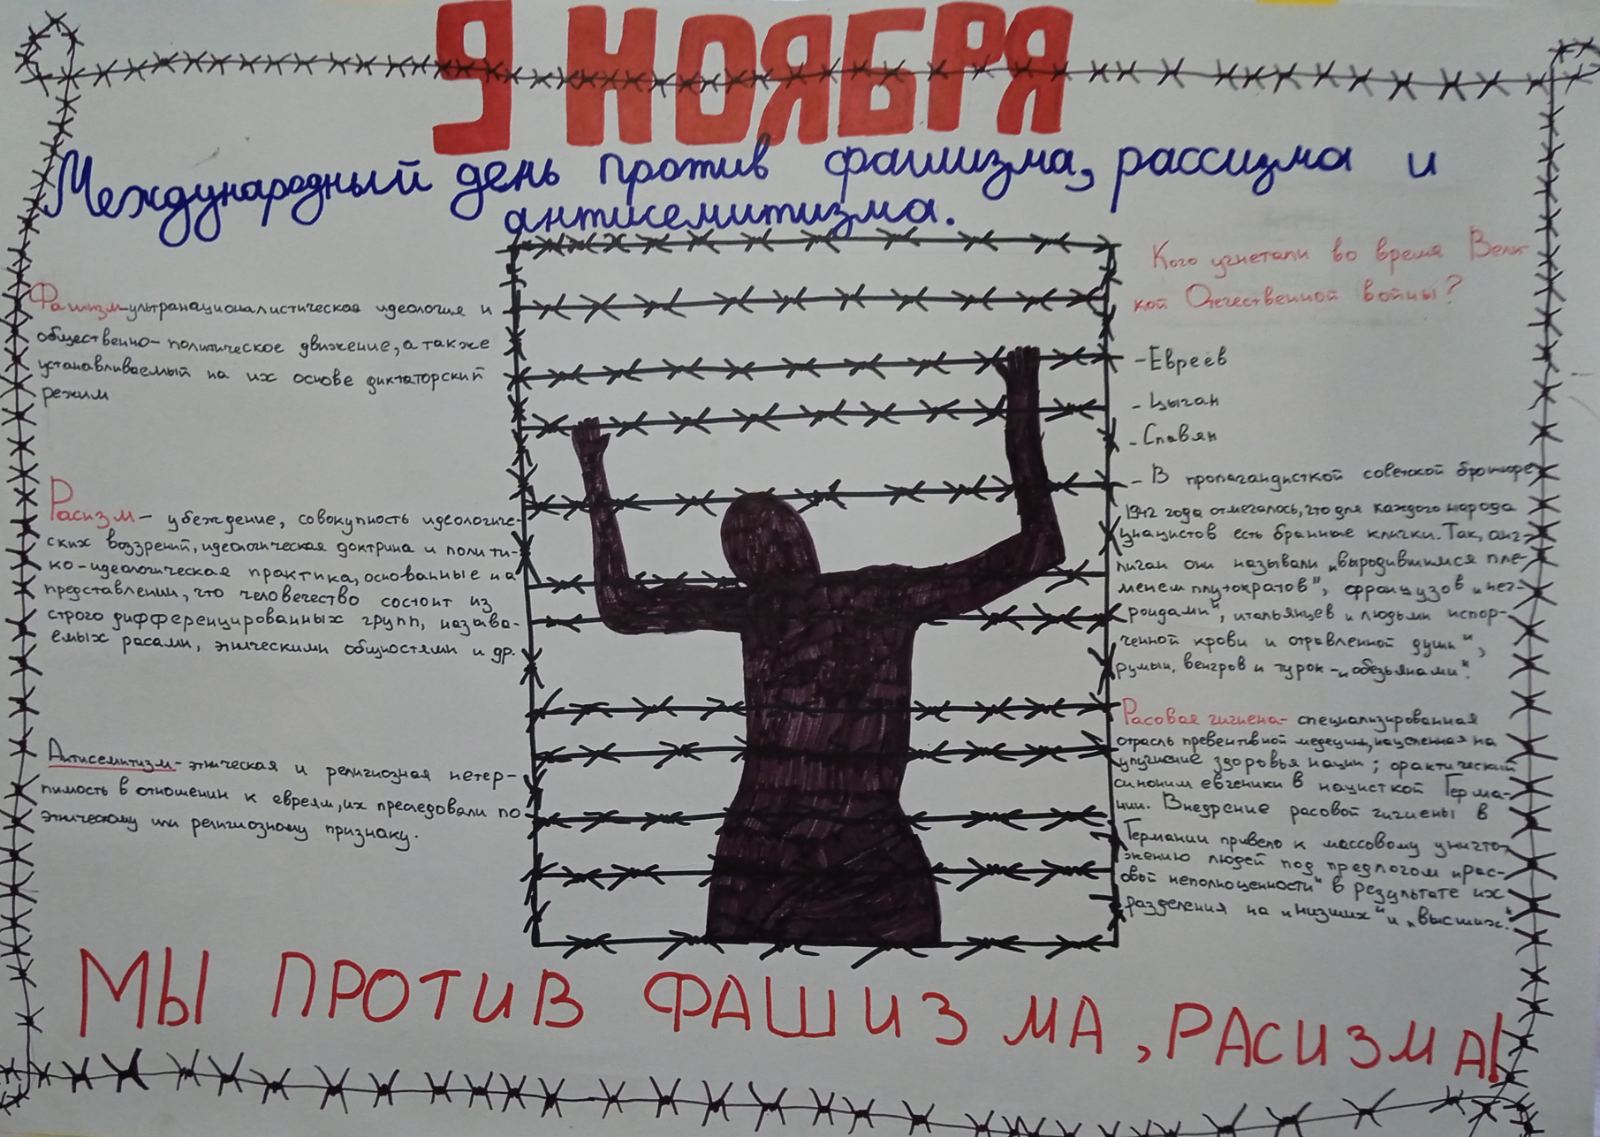 9 НОЯБРЯ
Международный день против фашизма, рассизма и
антисемитизма.
Фашизм-ультранационалистическая идеология и
общественно-политическое движение, а также
устанавливаемый на их основе диктаторский
режим
Расизм - убеждение, совокупность идеологиче-
ских воззрений, идеологическая доктрина и полити-
ко-идеологическая практика, основанные на
представлении, что человечество состоит из
строго дифференцированных групп, называ-
емых расами, этническими общностями и др.
Антисемитизм-этническая и религиозная нетер-
пимость в отношении к евреям, их преследовали по
этническому или религиозному признаку.
Кого угнетали во время Вели-
кой Отечественной войны?
-Евреев
- Цыган
- Славян
- В пропагандисткой советской брошюре
1942 года отмечалось, что для каждого народа
у нацистов есть бранные клички. Так, анг-
личан они называли „выродившимся пле-
менем плутократов", французов „нег-
роидами", итальянцев „людьми испор-
ченной крови и отравленной души",
румын, венгров и турок-„обезьянами".
Расовая гигиена- специализированная
отрасль превентивной медецины, нацеленная на
улучшение здоровья нации; фрактический
синоним евгеники в нацисткой Герма-
нии. Внедрение расовой гигиены в
Германии привело к массовому уничто-
жению людей под предлогом „рас-
овой неполноценности" в результате их
разделения на „низших" и „высших".
МЫ ПРОТИВ ФАШИЗМА, РАСИЗМА!